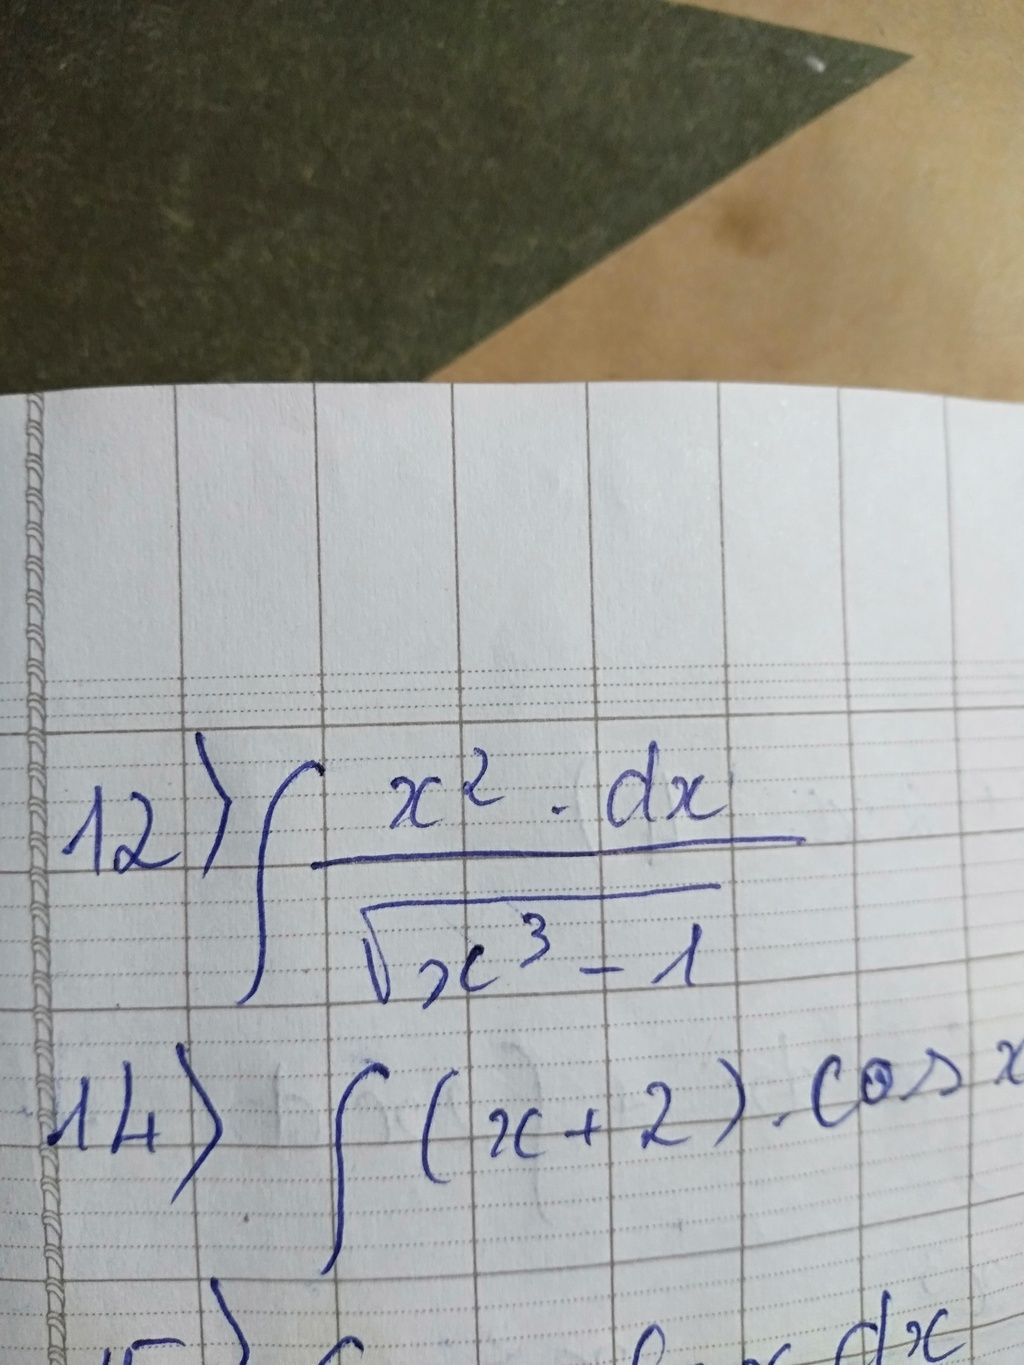 12) ∫ x² . dx / √(x³ - 1)
14) ∫ (x + 2) . cos x
dx